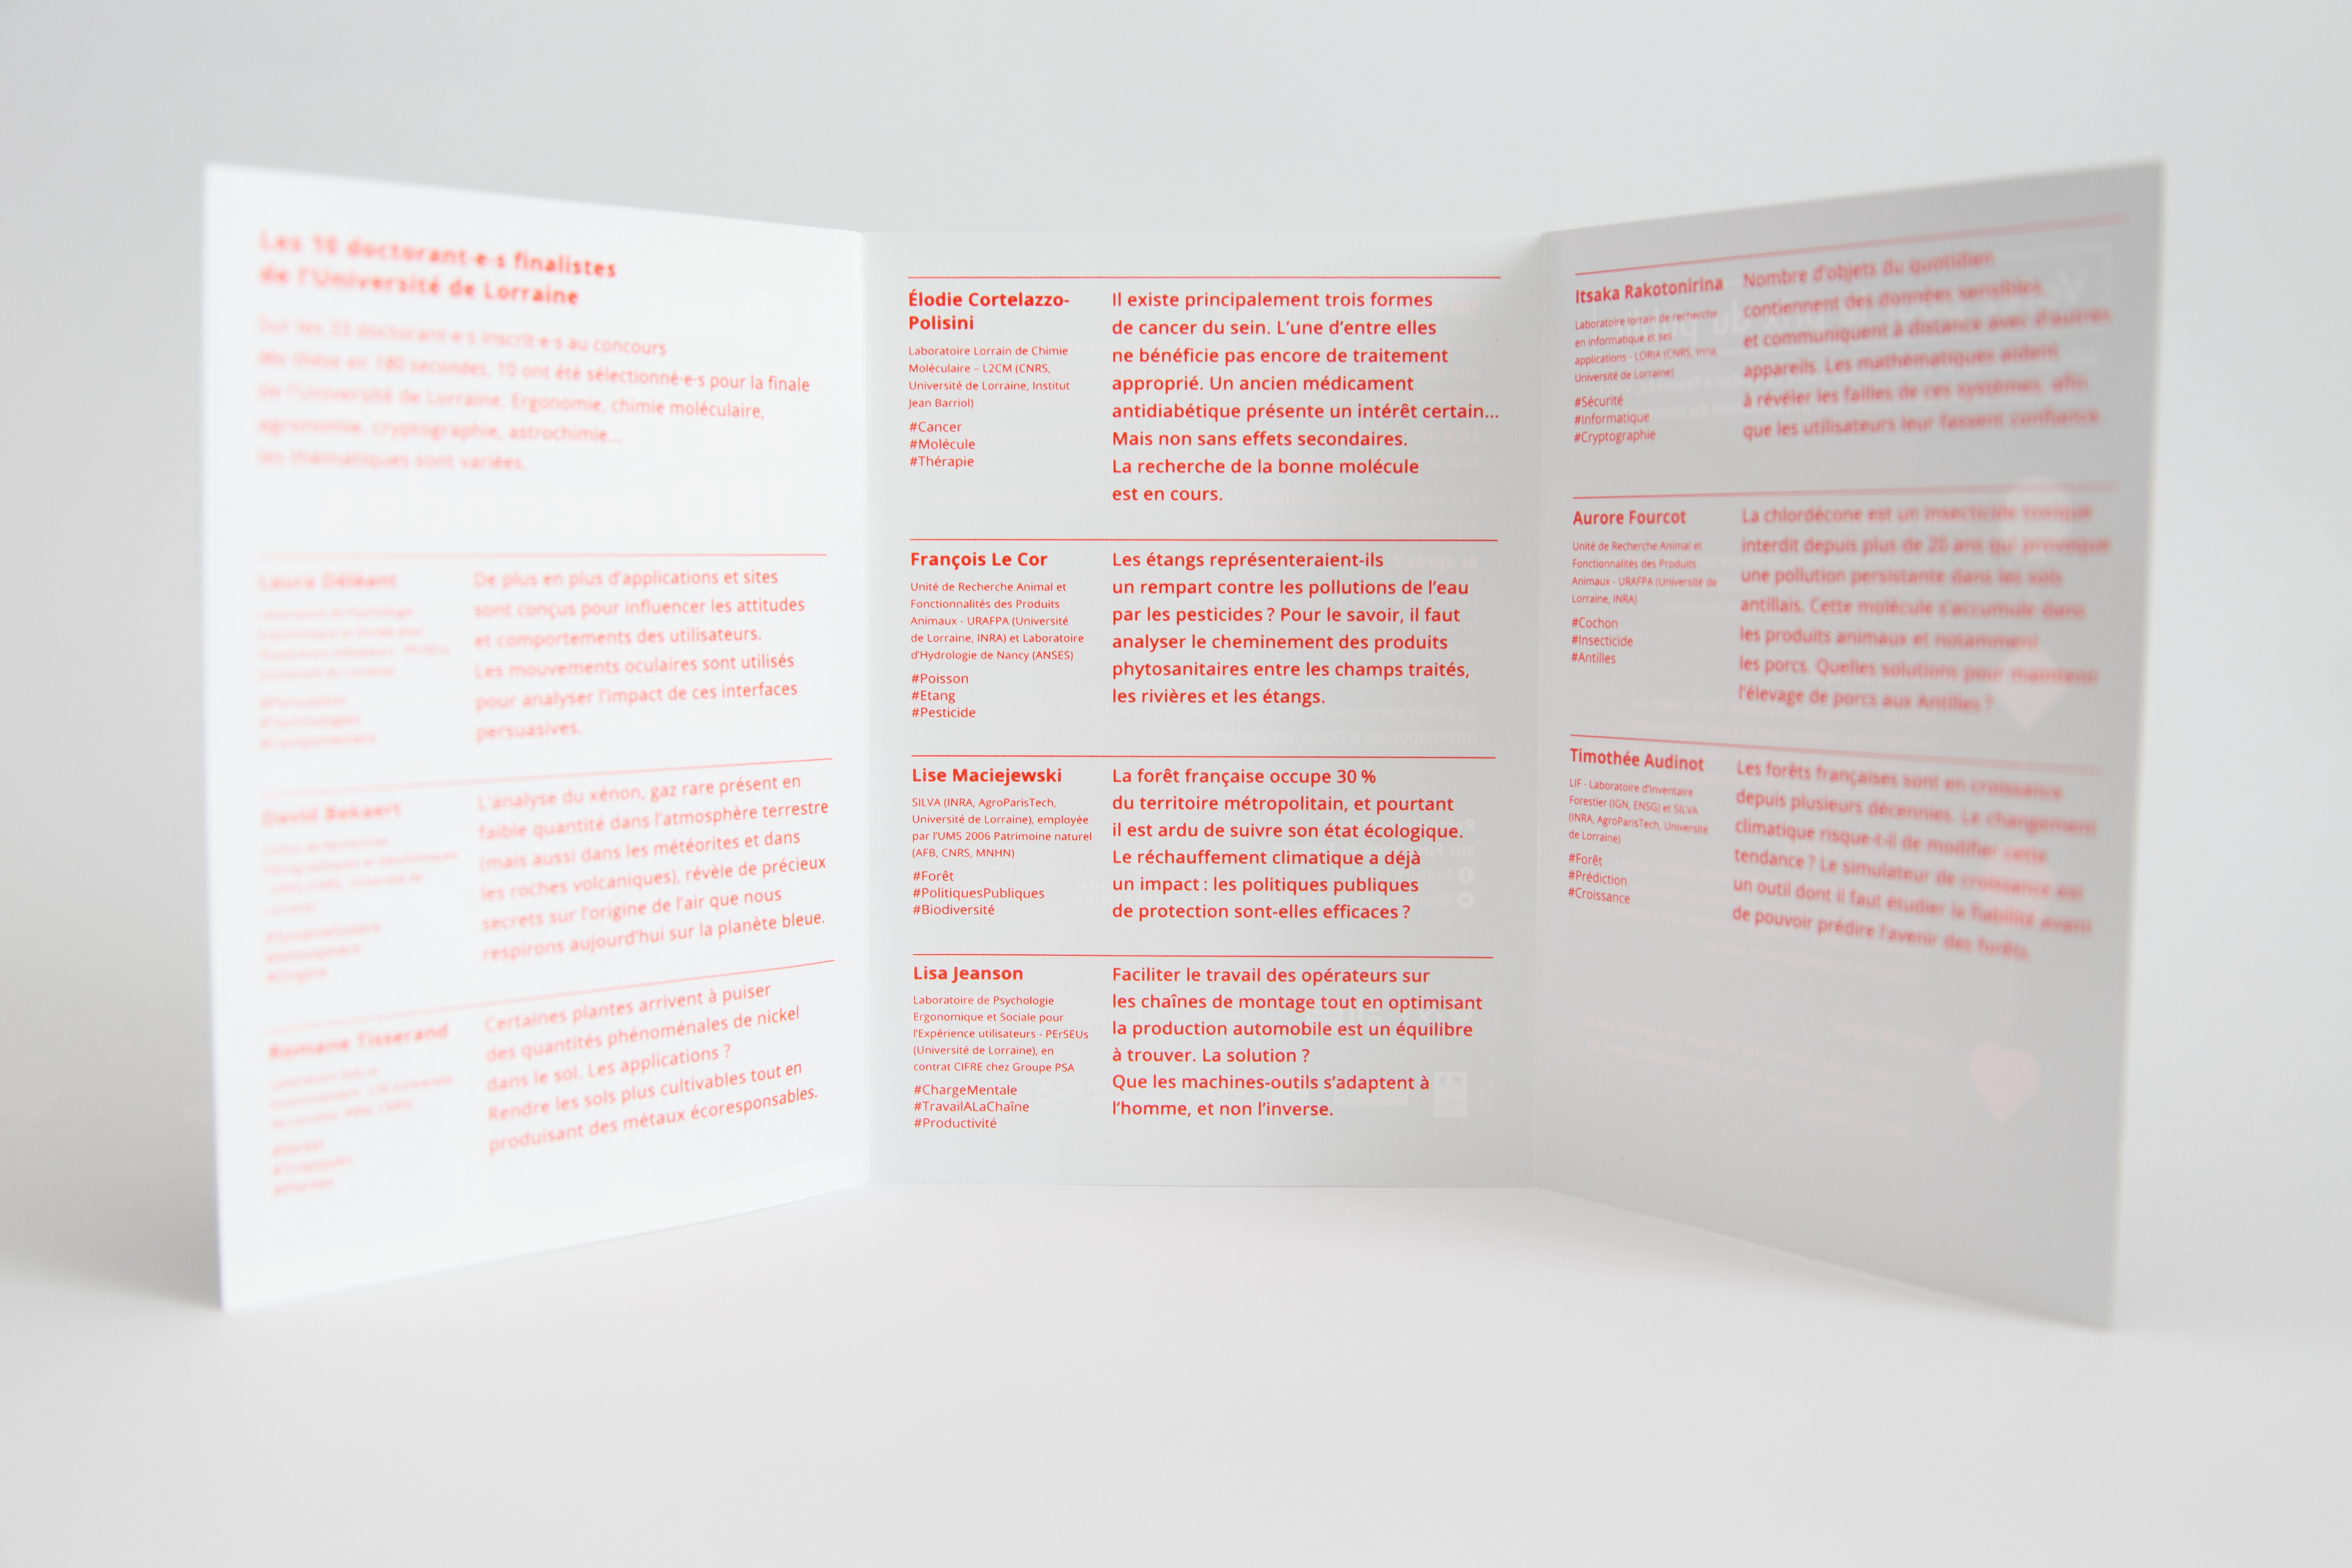 Les 10 doctorant·e·s finalistes
de l'Université de Lorraine
Sur les 33 doctorant·e·s inscrit·e·s au concours
Ma thèse en 180 secondes, 10 ont été sélectionné·e·s pour la finale
de l'Université de Lorraine. Ergonomie, chimie moléculaire,
agronomie, cryptographie, astrochimie...
les thématiques sont variées.
Laura Déléant
#Persuasion
#Technologies
#Comportement
De plus en plus d'applications et sites
sont conçus pour influencer les attitudes
et comportements des utilisateurs.
Les mouvements oculaires sont utilisés
pour analyser l'impact de ces interfaces
persuasives.
David Bekaert
L'analyse du xénon, gaz rare présent en
faible quantité dans l'atmosphère terrestre
(mais aussi dans les météorites et dans
les roches volcaniques), révèle de précieux
secrets sur l'origine de l'air que nous
respirons aujourd'hui sur la planète bleue.
Romane Tisserand
#Nickel
#Tropiques
#Plantes
Certaines plantes arrivent à puiser
des quantités phénoménales de nickel
dans le sol. Les applications ?
Rendre les sols plus cultivables tout en
produisant des métaux écoresponsables.
Élodie Cortelazzo-
Polisini
Laboratoire Lorrain de Chimie
Moléculaire – L2CM (CNRS,
Université de Lorraine, Institut
Jean Barriol)
#Cancer
#Molécule
#Thérapie
Il existe principalement trois formes
de cancer du sein. L'une d'entre elles
ne bénéficie pas encore de traitement
approprié. Un ancien médicament
antidiabétique présente un intérêt certain...
Mais non sans effets secondaires.
La recherche de la bonne molécule
est en cours.
François Le Cor
Unité de Recherche Animal et
Fonctionnalités des Produits
Animaux - URAFPA (Université
de Lorraine, INRA) et Laboratoire
d'Hydrologie de Nancy (ANSES)
#Poisson
#Etang
#Pesticide
Les étangs représenteraient-ils
un rempart contre les pollutions de l'eau
par les pesticides ? Pour le savoir, il faut
analyser le cheminement des produits
phytosanitaires entre les champs traités,
les rivières et les étangs.
Lise Maciejewski
SILVA (INRA, AgroParisTech,
Université de Lorraine), employée
par l'UMS 2006 Patrimoine naturel
(AFB, CNRS, MNHN)
#Forêt
#PolitiquesPubliques
#Biodiversité
La forêt française occupe 30 %
du territoire métropolitain, et pourtant
il est ardu de suivre son état écologique.
Le réchauffement climatique a déjà
un impact : les politiques publiques
de protection sont-elles efficaces ?
Lisa Jeanson
Laboratoire de Psychologie
Ergonomique et Sociale pour
l'Expérience utilisateurs - PErSEUs
(Université de Lorraine), en
contrat CIFRE chez Groupe PSA
#ChargeMentale
#TravailALaChaîne
#Productivité
Faciliter le travail des opérateurs sur
les chaînes de montage tout en optimisant
la production automobile est un équilibre
à trouver. La solution ?
Que les machines-outils s'adaptent à
l'homme, et non l'inverse.
Itsaka Rakotonirina
Laboratoire lorrain de recherche
en informatique et ses
applications - LORIA (CNRS, Inria,
Université de Lorraine)
#Sécurité
#Informatique
#Cryptographie
Nombre d'objets du quotidien
contiennent des données sensibles
et communiquent à distance avec d'autres
appareils. Les mathématiques aident
à révéler les failles de ces systèmes, afin
que les utilisateurs leur fassent confiance.
Aurore Fourcot
Unité de Recherche Animal et
Fonctionnalités des Produits
Animaux - URAFPA (Université de
Lorraine, INRA)
#Cochon
#Insecticide
#Antilles
La chlordécone est un insecticide toxique
interdit depuis plus de 20 ans qui provoque
une pollution persistante dans les sols
antillais. Cette molécule s'accumule dans
les produits animaux et notamment
les porcs. Quelles solutions pour maintenir
l'élevage de porcs aux Antilles ?
Timothée Audinot
LIF - Laboratoire d'Inventaire
Forestier (IGN, ENSG) et SILVA
(INRA, AgroParisTech, Université
de Lorraine)
#Forêt
#Prédiction
#Croissance
Les forêts françaises sont en croissance
depuis plusieurs décennies. Le changement
climatique risque-t-il de modifier cette
tendance ? Le simulateur de croissance est
un outil dont il faut étudier la fiabilité avant
de pouvoir prédire l'avenir des forêts.